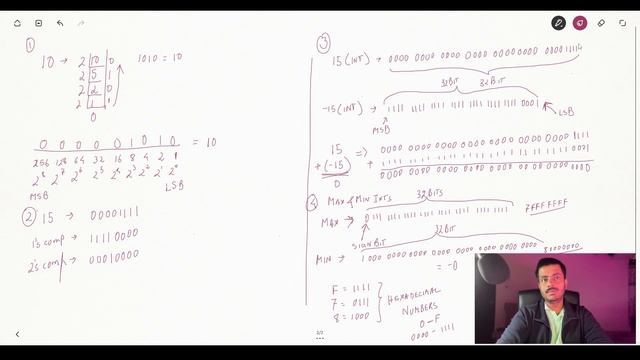 ①
10 → 2 | 10 | 0
2 | 5 | 1
2 | 2 | 0
2 | 1 | 1
0
1010 = 10
0 0 0 0 0 1 0 1 0 = 10
256 128 64 32 16 8 4 2 1
2⁸ 2⁷ 2⁶ 2⁵ 2⁴ 2³ 2² 2¹ 2⁰
MSB LSB
② 15 → 00001111
1's comp → 11110000
2's comp → 00010000
③
15 (INT) → 0000 0000 0000 0000 0000 0000 0000 1111
32BIT 32BIT
-15 (INT) → 1111 1111 1111 1111 1111 1111 1111 0001
MSB LSB
15 ⇒ 0000 0000 0000 0000 0000 0000 0000 1111
+ (-15) + 1111 1111 1111 1111 1111 1111 1111 0001
0 0000 0000 0000 0000 0000 0000 0000 0000
④ MAX & MIN INTS 32BITS
MAX → 0111 1111 1111 1111 1111 1111 1111 1111 7FFFFFFF
SIGN BIT 32BIT
MIN → 1000 0000 0000 0000 0000 0000 0000 0000 80000000
= -0
F = 1111
7 = 0111
8 = 1000
HEXADECIMAL
NUMBERS
0-F
0000 - 1111
2/2